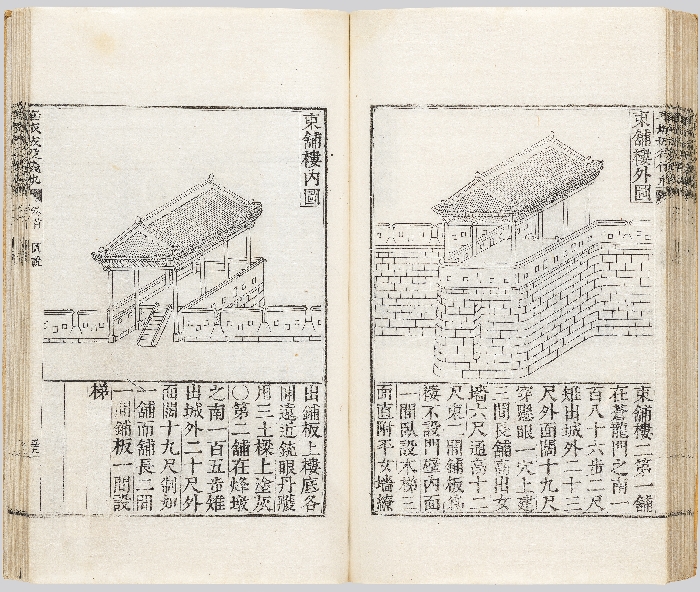 東舖樓外圖
東舖樓二第一舖
在蒼龍門之南一
百八十六步二尺
雉出城外二十三
尺外面闊十九尺
穿懸眼一穴上建
三間長舖高出女
墻六尺通高十二
尺東一間舖板爲
樓不設門壁內面
一間臥設木梯三
面直附平女墻繚
東舖樓內圖
出鋪板上樓底各
開遠近銃眼丹雘
用三土樑上塗灰
〇第二舖在烽墩
之南一百五步雉
出城外二十尺外
面闊十九尺制如
一舖而舖長二間
一間鋪板一間設
梯